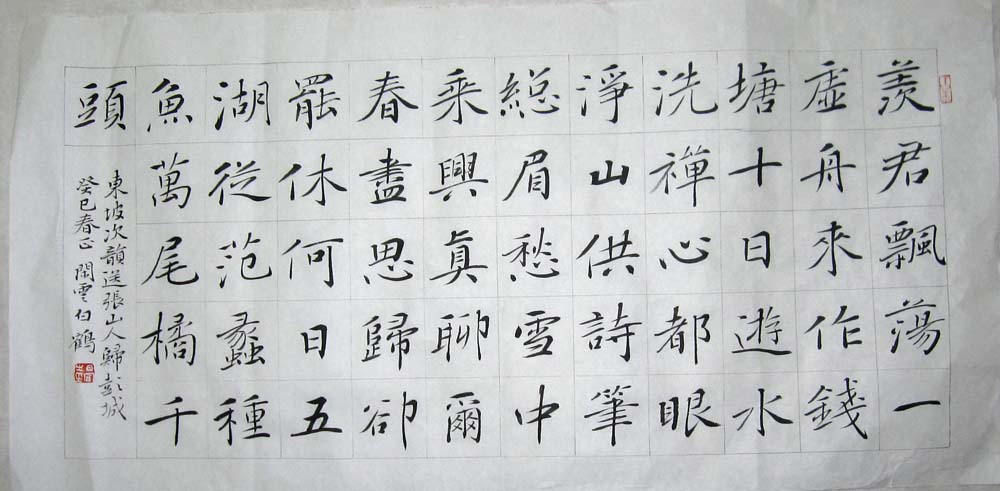 羨君飄蕩一
虛舟來作錢
塘十日遊水
洗禪心都眼
淨山供詩筆
緫眉愁雪中
乘興眞聊爾
春盡思歸卻
罷休何日五
湖從范蠡種
魚萬尾橘千
頭
東坡次韻送張山人歸彭城
癸巳春正 閑雲白鶴